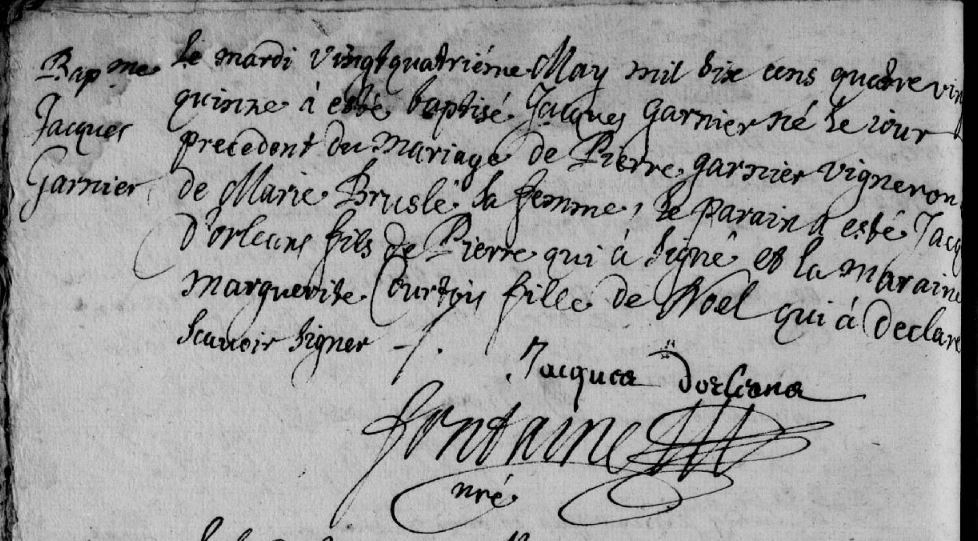 Bapme
Jacques
Garnier
Le mardi vingtquatriéme May mil six cens quatre vin
quinze à esté baptisé Jacques garnier né le iour
precedent du mariage de Pierre garnier vigneron
de Marie Bruslé sa femme, le parain a esté Jacq
D'orleans fils de Pierre qui à signé et la maraine
Marguerite Courtois fille de Noel qui à declare
scauoir signer -/.
Jacques dorleans
fontaine
nré